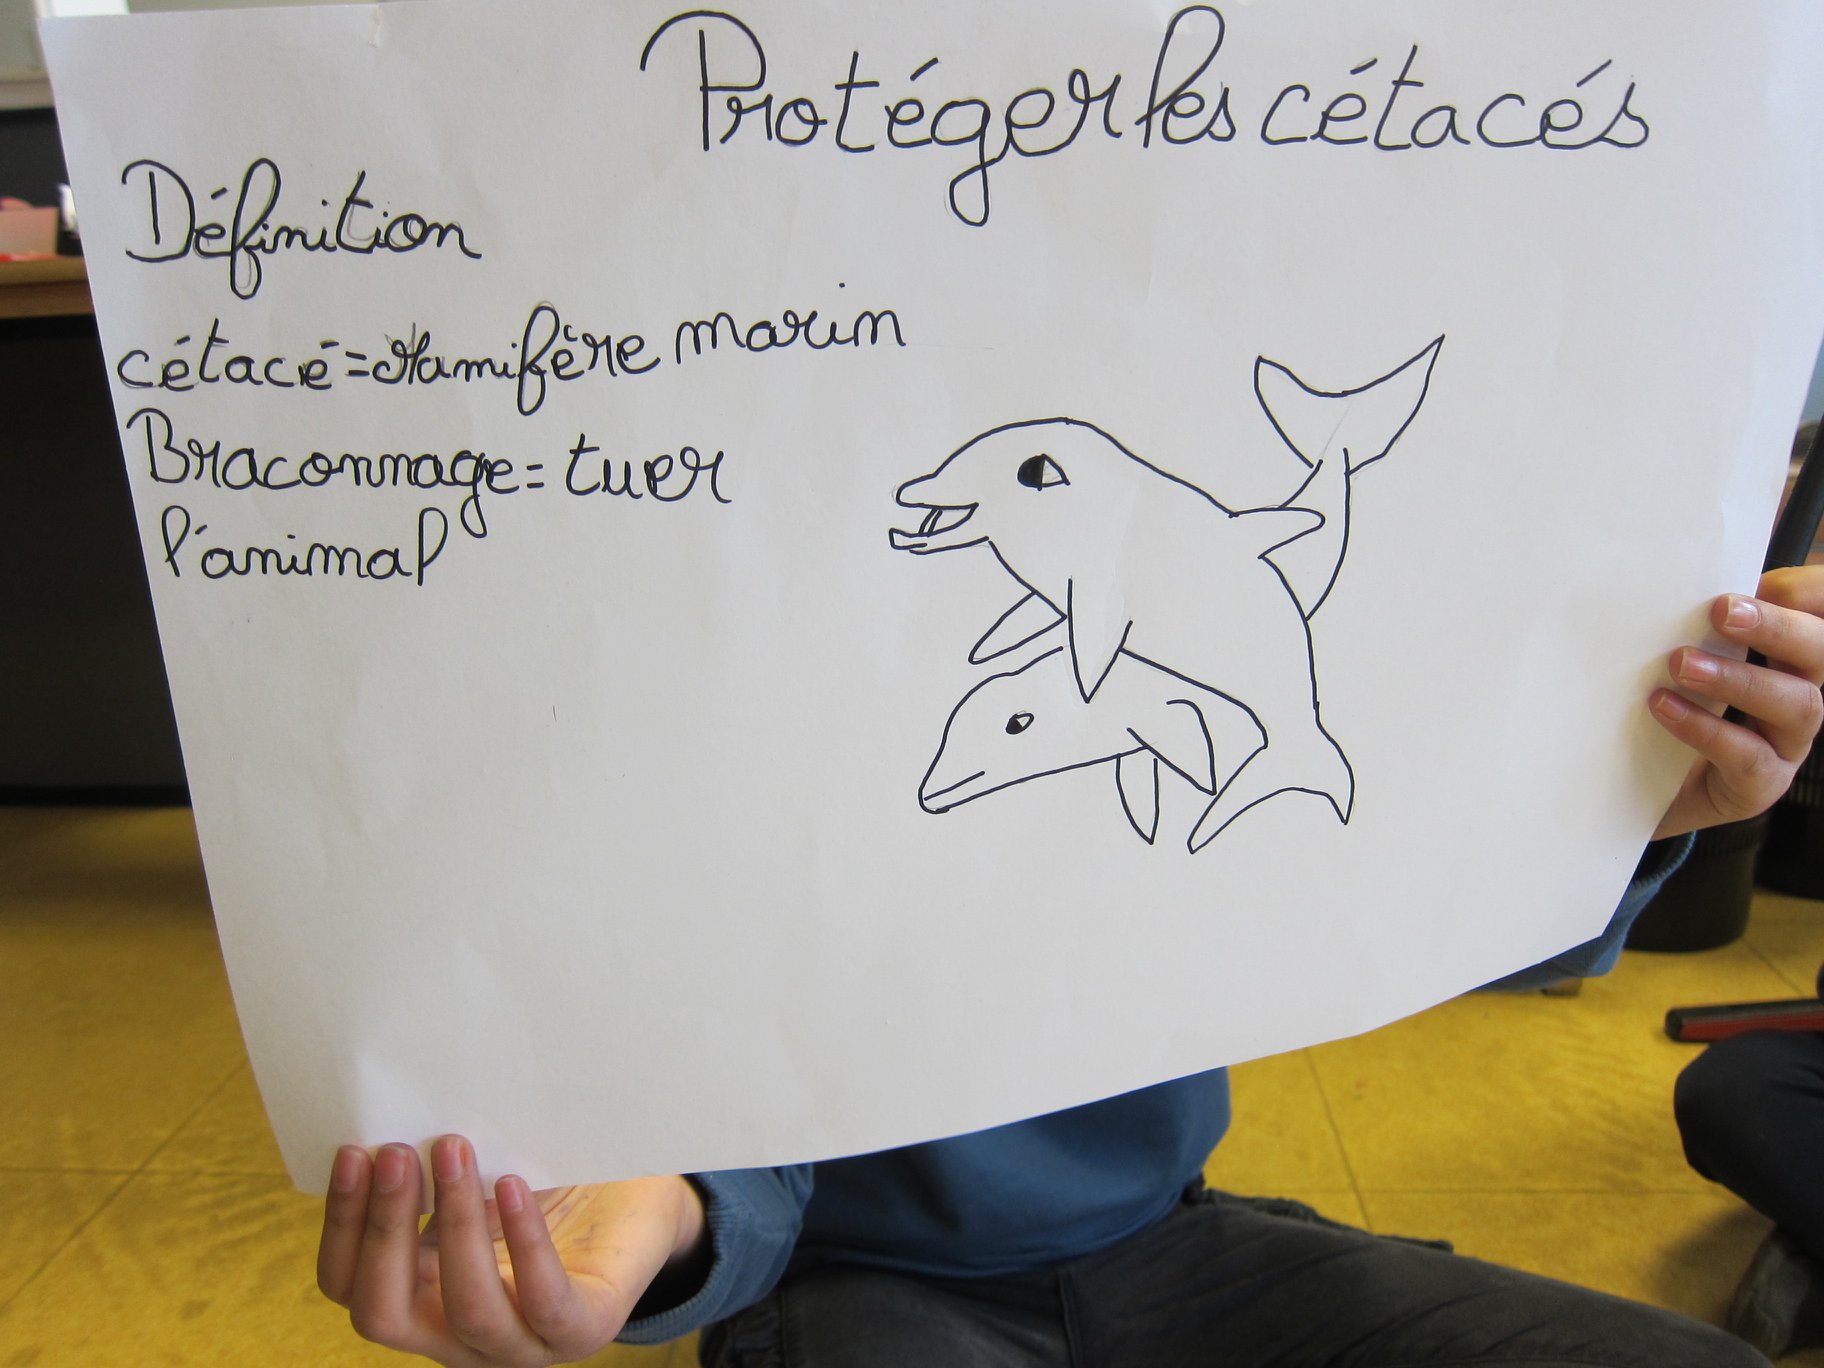 Protéger les cétacés
Définition
cétacé = Mamifère marin
Braconnage = tuer
l'animal